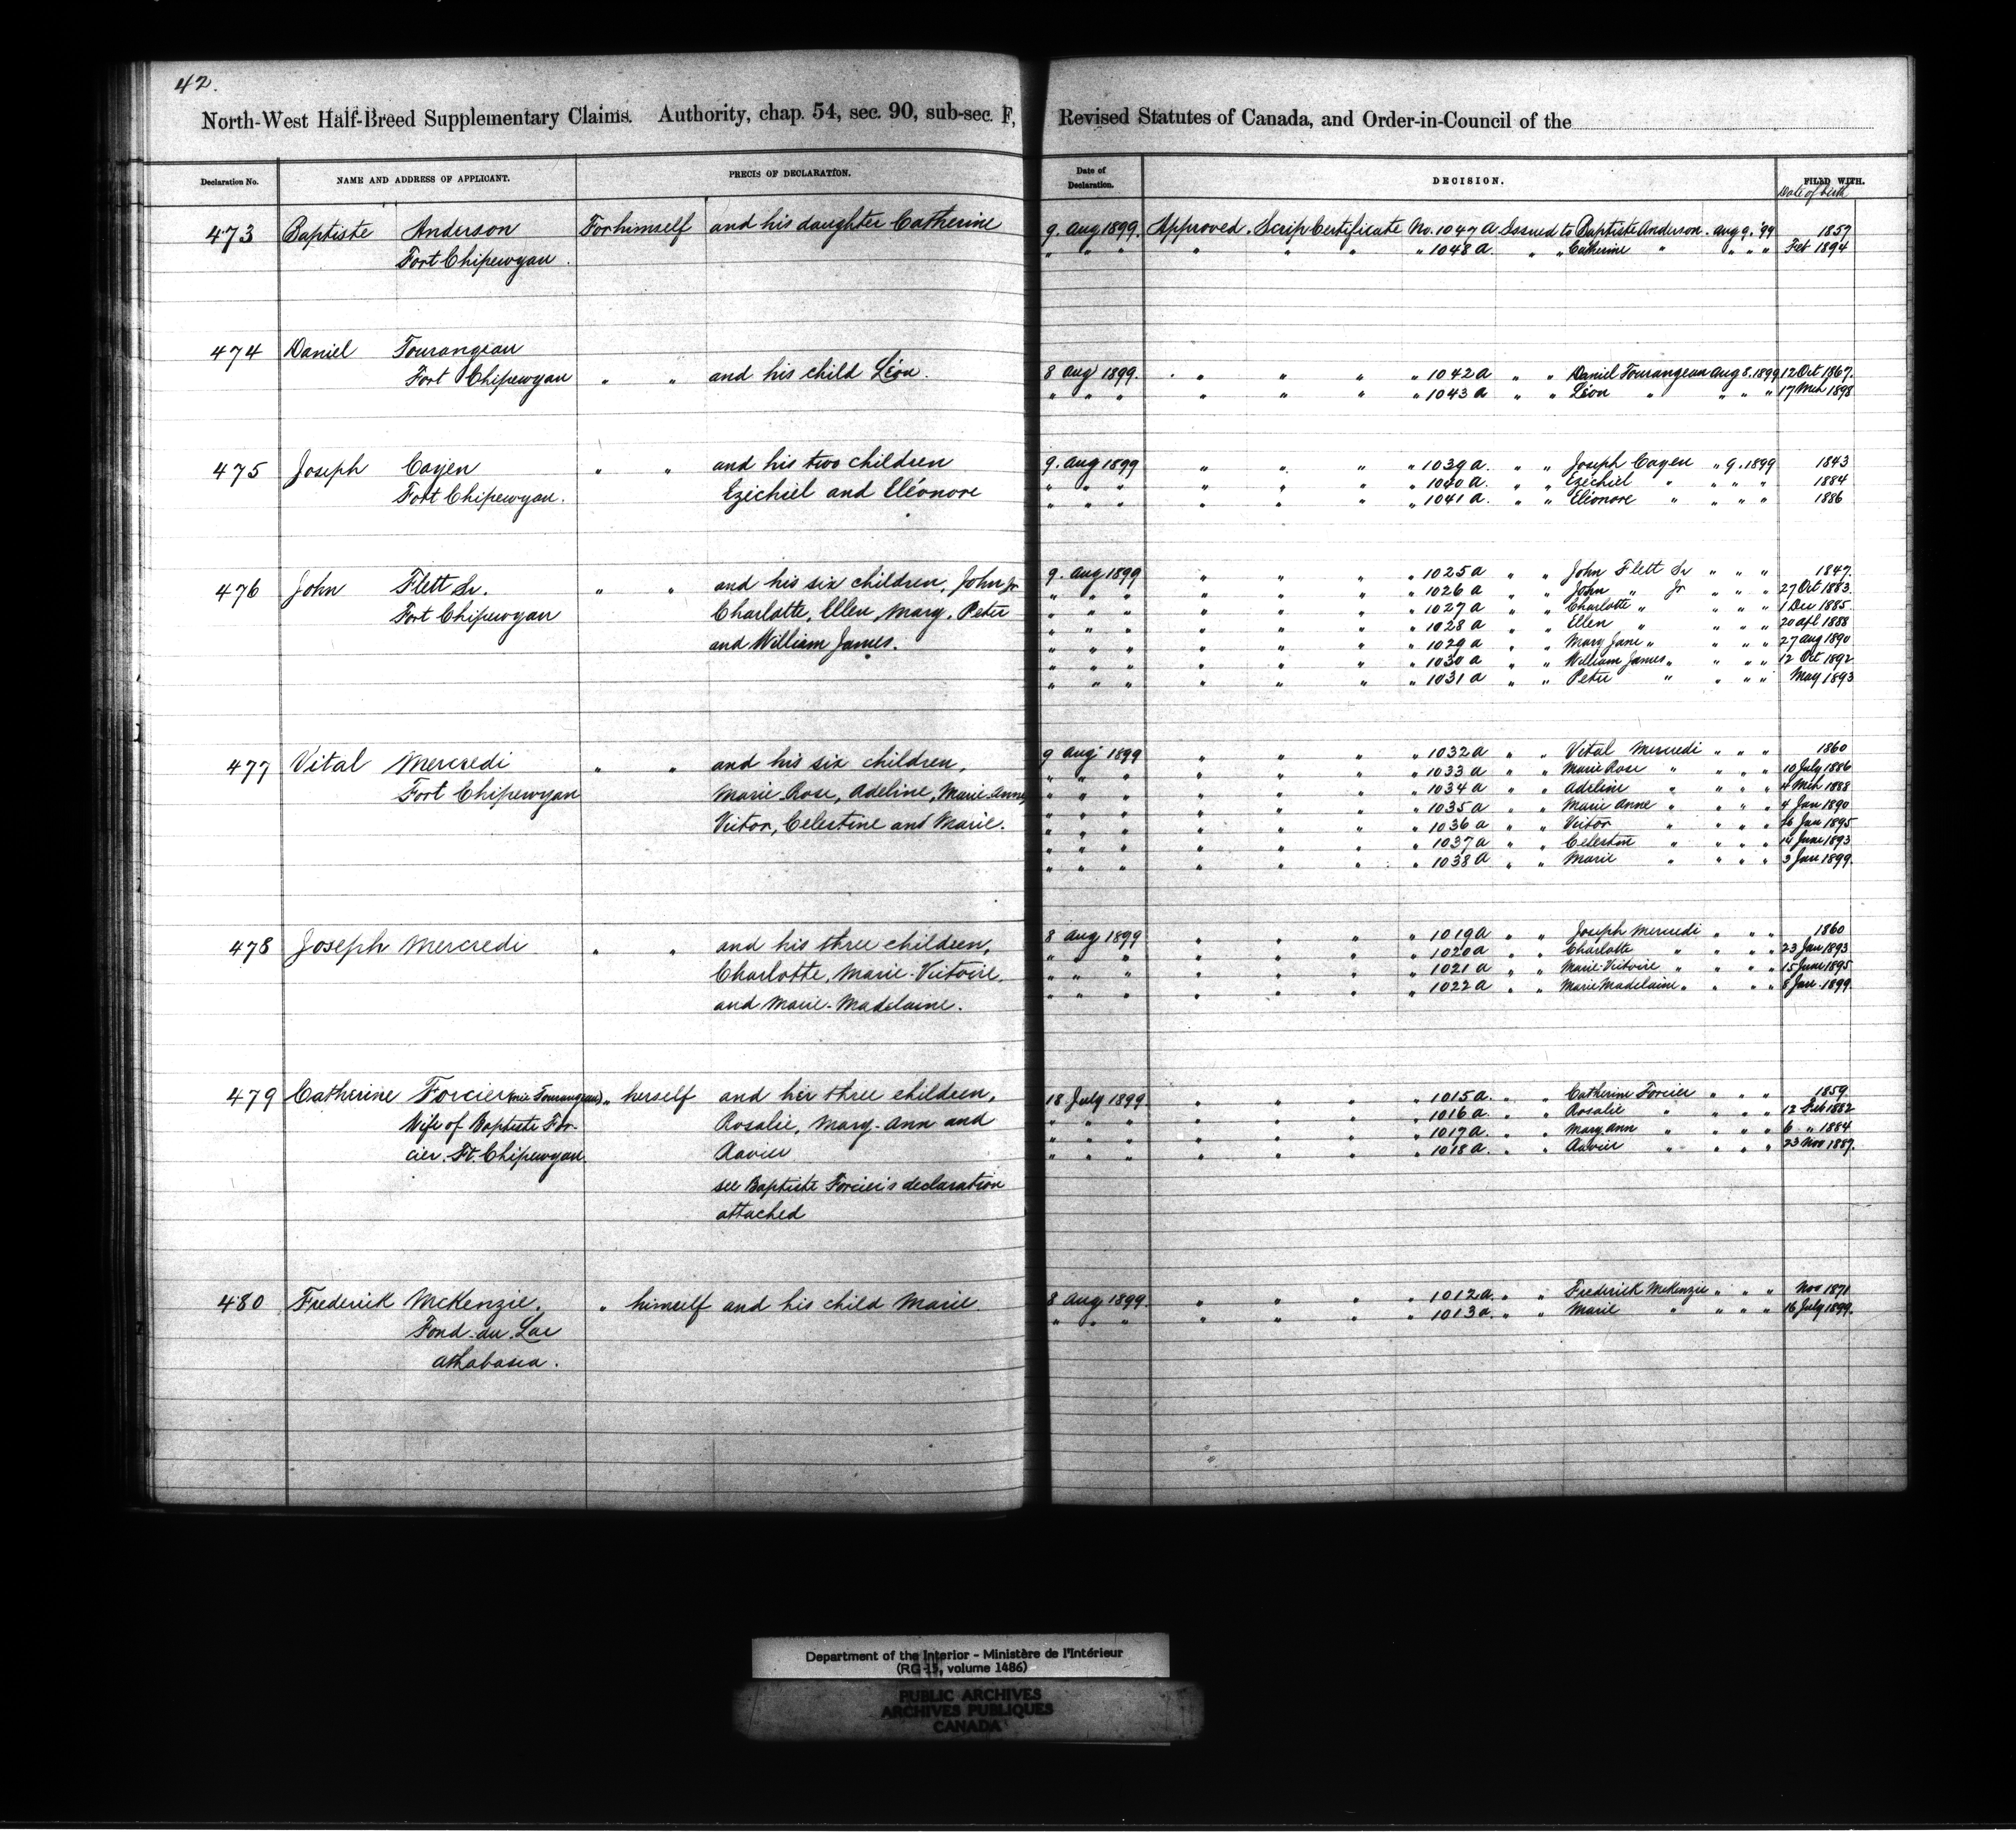 42.
North-West Half-Breed Supplementary Claims. Authority, chap. 54, sec. 90, sub-sec. F, Revised Statutes of Canada, and Order-in-Council of the
Declaration No. NAME AND ADDRESS OF APPLICANT. PRECIS OF DECLARATION. Date of Declaration. DECISION. FILED WITH.
Date of birth
473 Baptiste Anderson For himself and his daughter Catherine 9. Aug 1899. Approved. Scrip Certificate No. 1047 A Issued to Baptiste Anderson. Aug 9. '99 1857
Fort Chipewyan. " " " " " " 1048 A. " " Catherine " " " " Feb 1894
474 Daniel Tourangeau
Fort Chipewyan " " and his child Léon. 8 Aug 1899. " " " " 1042 A " " Daniel Tourangeau Aug 8. 1899 12 Oct 1867.
" " " " " " " 1043 A " " Léon " " " " 17 Mch 1898
475 Joseph Cayen " " and his two children 9. Aug 1899 " " " " 1039 A. " " Joseph Cayen " 9. 1899 1843
Fort Chipewyan. Ezichiel and Eléonore " " " " " " " 1040 A. " " Ezichiel " " " " 1884
" " " " " " " 1041 A. " " Eléonore " " " " 1886
476 John Flett Sr. " " and his six children, John Jr 9. Aug 1899 " " " " 1025 A " " John Flett Sr " " " 1847.
Fort Chipewyan Charlotte, Ellen, Mary, Peter " " " " " " " 1026 A " " John " Jr " " " 27 Oct 1883.
and William James. " " " " " " " 1027 A " " Charlotte " " " " 1 Dec 1885.
" " " " " " " 1028 A " " Ellen " " " " 20 Apl 1888
" " " " " " " 1029 A " " Mary Jane " " " " 27 Aug 1890
" " " " " " " 1030 A " " William James " " " " 12 Oct 1892
" " " " " " " 1031 A " " Peter " " " " May 1893
477 Vital Mercredi " " and his six children, 9 Aug 1899 " " " " 1032 A " " Vital Mercredi " " " 1860
Fort Chipewyan Marie Rose, Adeline, Marie Anne, " " " " " " " 1033 A " " Marie Rose " " " " 10 July 1886
Victor, Celestine and Marie. " " " " " " " 1034 A " " Adeline " " " " 4 Mch 1888
" " " " " " " 1035 A " " Marie Anne " " " " 4 Jan 1890
" " " " " " " 1036 A " " Victor " " " " Jan 1895
" " " " " " " 1037 A " " Celestin " " " " 14 June 1893
" " " " " " " 1038 A " " Marie " " " " 3 Jan 1899.
478 Joseph Mercredi " " and his three children, 8 Aug 1899 " " " " 1019 A " " Joseph Mercredi " " " 1860
Charlotte, Marie-Victoire, " " " " " " " 1020 A " " Charlotte " " " " 23 Jan 1893
and Marie-Madelaine. " " " " " " " 1021 A " " Marie-Victoire " " " " 15 June 1895
" " " " " " " 1022 A " " Marie Madelaine " " " " 8 Jan 1899
479 Catherine Forcier (née Tourangeau) " herself and her three children, 18 July 1899 " " " " 1015 A. " " Catherine Forcier " " " 1859
Wife of Baptiste For- Rosalie, Mary-Ann and " " " " " " " 1016 A. " " Rosalie " " " " 12 Feb 1882
cier. Ft. Chipewyan. Xavier " " " " " " " 1017 A. " " Mary Ann " " " " 6 " 1884
" " " " " " " 1018 A. " " Xavier " " " " 23 Nov 1887.
see Baptiste Forcier's declaration
attached
480 Frederick McKenzie. " himself and his child Marie 8 Aug 1899. " " " " 1012 A. " " Frederick McKenzie " " " Nov 1871
Fond-du-Lac " " " " " " " 1013 A. " " Marie " " " " 16 July 1899.
Athabasca.
Department of the Interior - Ministère de l'Intérieur
(RG 15, volume 1486)
PUBLIC ARCHIVES
ARCHIVES PUBLIQUES
CANADA